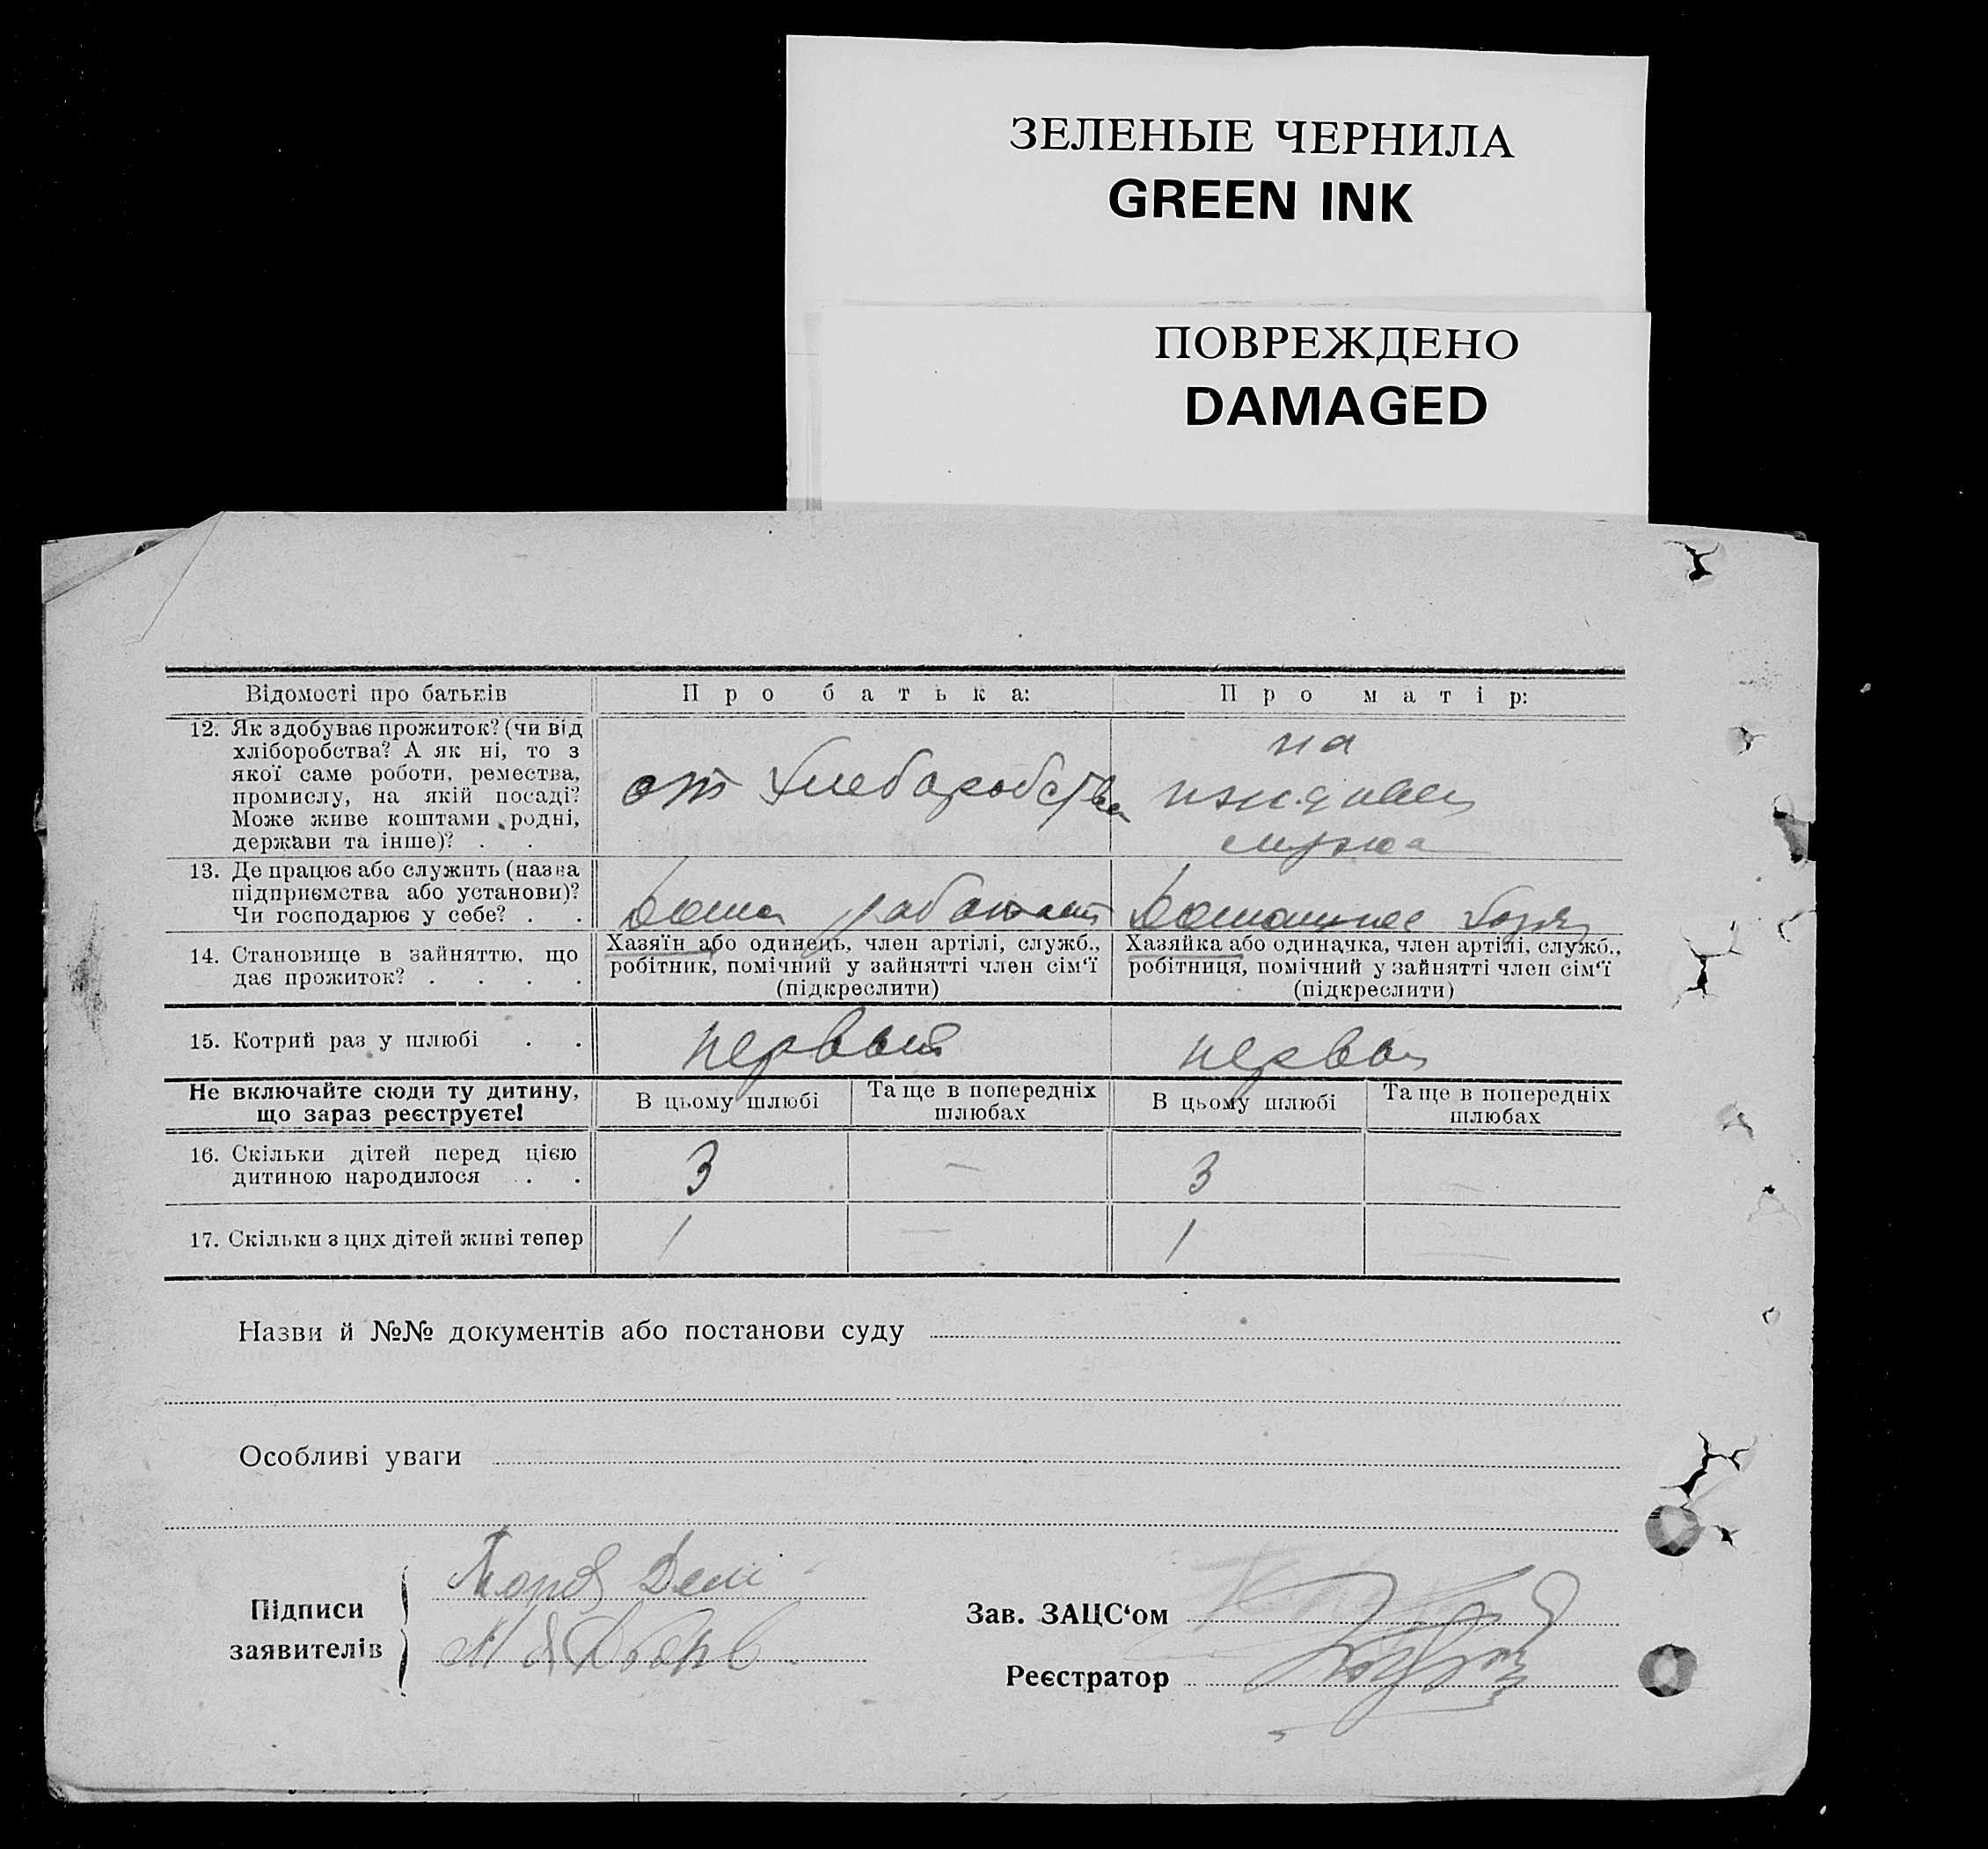 ЗЕЛЕНЫЕ ЧЕРНИЛА
GREEN INK
ПОВРЕЖДЕНО
DAMAGED
Відомості про батьків
Про батька:
Про матір:
12. Як здобуває прожиток? (чи від
хліборобства? А як ні, то з
якої саме роботи, ремества,
промислу, на якій посаді?
Може живе коштами родні,
держави та інше)? . .
от хлебаробства
на
мужа
13. Де працює або служить (назва
підприємства або установи)?
Чи господарює у себе? . .
дома работает
Домашнее
14. Становище в зайняттю, що
дає прожиток? . . . .
Хазяїн або одинець, член артілі, служб.,
робітник, помічний у зайнятті член сім‘ї
(підкреслити)
Хазяйка або одиначка, член артілі, служб.,
робітниця, помічний у зайнятті член сім‘ї
(підкреслити)
15. Котрий раз у шлюбі . .
первый
первый
Не включайте сюди ту дитину,
що зараз реєструєте!
В цьому шлюбі
Та ще в попередніх
шлюбах
В цьому шлюбі
Та ще в попередніх
шлюбах
16. Скільки дітей перед цією
дитиною народилося . .
3
—
3
—
17. Скільки з цих дітей живі тепер
1
—
1
—
Назви й №№ документів або постанови суду
Особливі уваги
Підписи
заявителів
Зав. ЗАЦС‘ом
Реєстратор